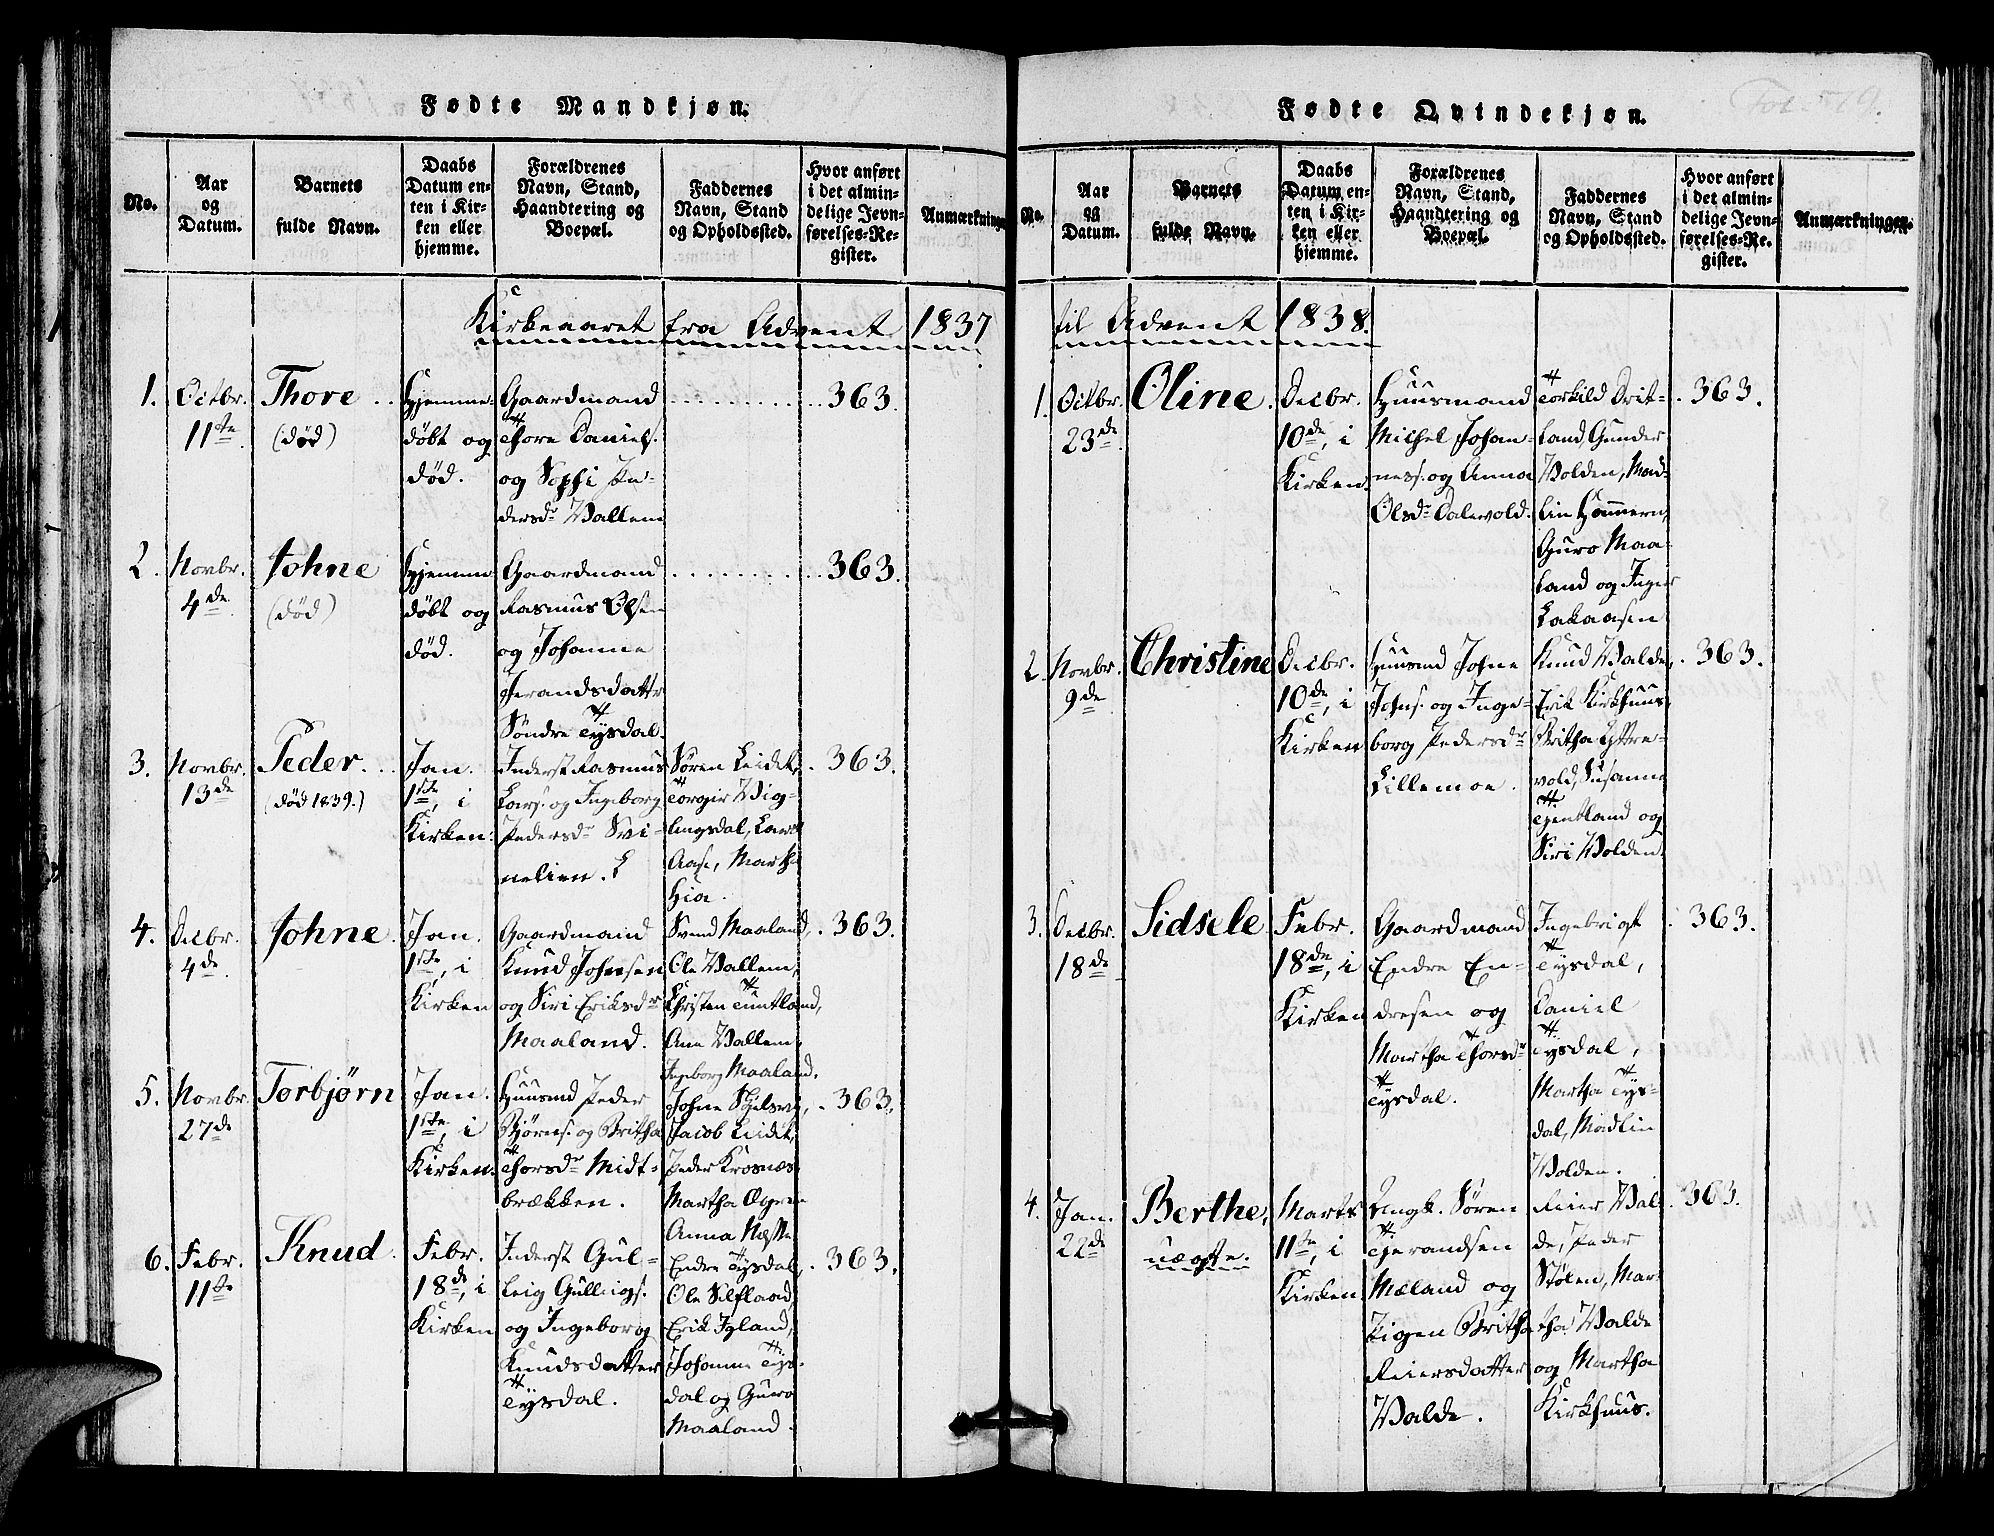 Fødte Mandkjøn.
No.
Aar
og
Datum.
Barnets
fulde Navn.
Daabs
Datum en-
ten i Kir-
ken eller
hjemme.
Forældrenes
Navn, Stand,
Haandtering og
Boepæl.
Faddernes
Navn, Stand
og Opholdssted.
Hvor anført
i det almin-
delige Jevn-
førelses-Re-
gister.
Anmærkninger
Kirkeaaret fra Advent 1837
1.
Octbr.
11te
Thore
(død)
Hjemme-
døbt og
død.
Gaardmand
Thore Daniels.
og Sophi Pe-
dersdr Vallem
363.
2.
Novbr.
4de
Johne
(død)
Hjemme
døbt og
død.
Gaardmand
Rasmus Olsen
og Johanne
Jerandsdattr
Søndre Tysdal.
363.
3.
Novbr.
13de
Peder
(død 1839.)
Jan.
1ste, i
Kirken.
Inderst Rasmus
Lars. og Ingeborg
Pedersdr Svi-
nelien.
Søren Leidet,
Torgir Vig-
lingsdal, Lars
Aase, Martha
Hia.
363.
4.
Decbr.
4de
Johne
Jan.
1ste, i
Kirken
Gaardmand
Knud Johnsen
og Siri Eriksdr
Maaland.
Svend Maaland,
Ole Vallem,
Christen Tuntland,
Ane Vallem,
Ingeborg Maaland.
363.
5.
Novbr.
27de
Torbjørn
Jan.
1ste, i
Kirken.
Huusmd Peder
Bjørns. og Britha
Thorsdr Midt-
brækken.
Johne Skjelsvig,
Jacob Leidet,
Peder Krosnæs
Martha
Anna
363.
6.
Febr.
11te
Knud
Febr.
18de, i
Kirken
Inderst Gul-
leig Gulleigs.
og Ingeborg
Knudsdatter
Tysdal.
Endre Tysdal,
Ole Selfland,
Erik Igland,
Johanne Tys-
dal og Guro
Maaland.
363.
Fol. 579.
Fødte Qvindekjøn.
No.
Aar
og
Datum.
Barnets
fulde Navn.
Daabs
Datum en-
ten i Kir-
ken eller
hjemme.
Forældrenes
Navn, Stand,
Haandtering og
Boepæl.
Faddernes
Navn, Stand
og Opholdssted.
Hvor anført
i det almin-
delige Jevn-
førelses-Re-
gister.
Anmærkningen.
til Advent 1838.
1.
Octbr.
23de
Oline
Decbr.
10de, i
Kirken.
Huusmand
Michel Johan-
ness. og Anna
Olsdr Dalevold.
Torkild Drit-
land, Gunder
Volden, Mad-
lin Hammern,
Guro Maa-
land og Inger
Lakaasen
363.
2.
Novbr.
9de
Christine
Decbr.
10de, i
Kirken
Huusmd Johne
Johns. og Inge-
borg Pedersdr
Lillemoe.
Knud Valde,
Erik Kirkhuus,
Britha Lyttre-
vold, Susanne
Tjentland og
Siri Volden.
363.
3.
Decbr.
18de
Sidsele
Febr.
18de, i
Kirken
Gaardmand
Endre En-
dresen og
Martha Thorsdr
Tysdal.
Ingebrigt
Tysdal,
Daniel
Tysdal,
Martha Tys-
dal, Madlin
Volden.
363.
4.
Jan.
22de
Berthe,
uægte.
Marts
11te, i
Kirken.
Ungk. Søren
Tjerandsen
Mæland og
Pigen Britha
Reiersdatter
Valde.
Reier Val-
de, Peder
Stølen, Mar-
tha Valde
og Martha
Kirkhuus.
363.